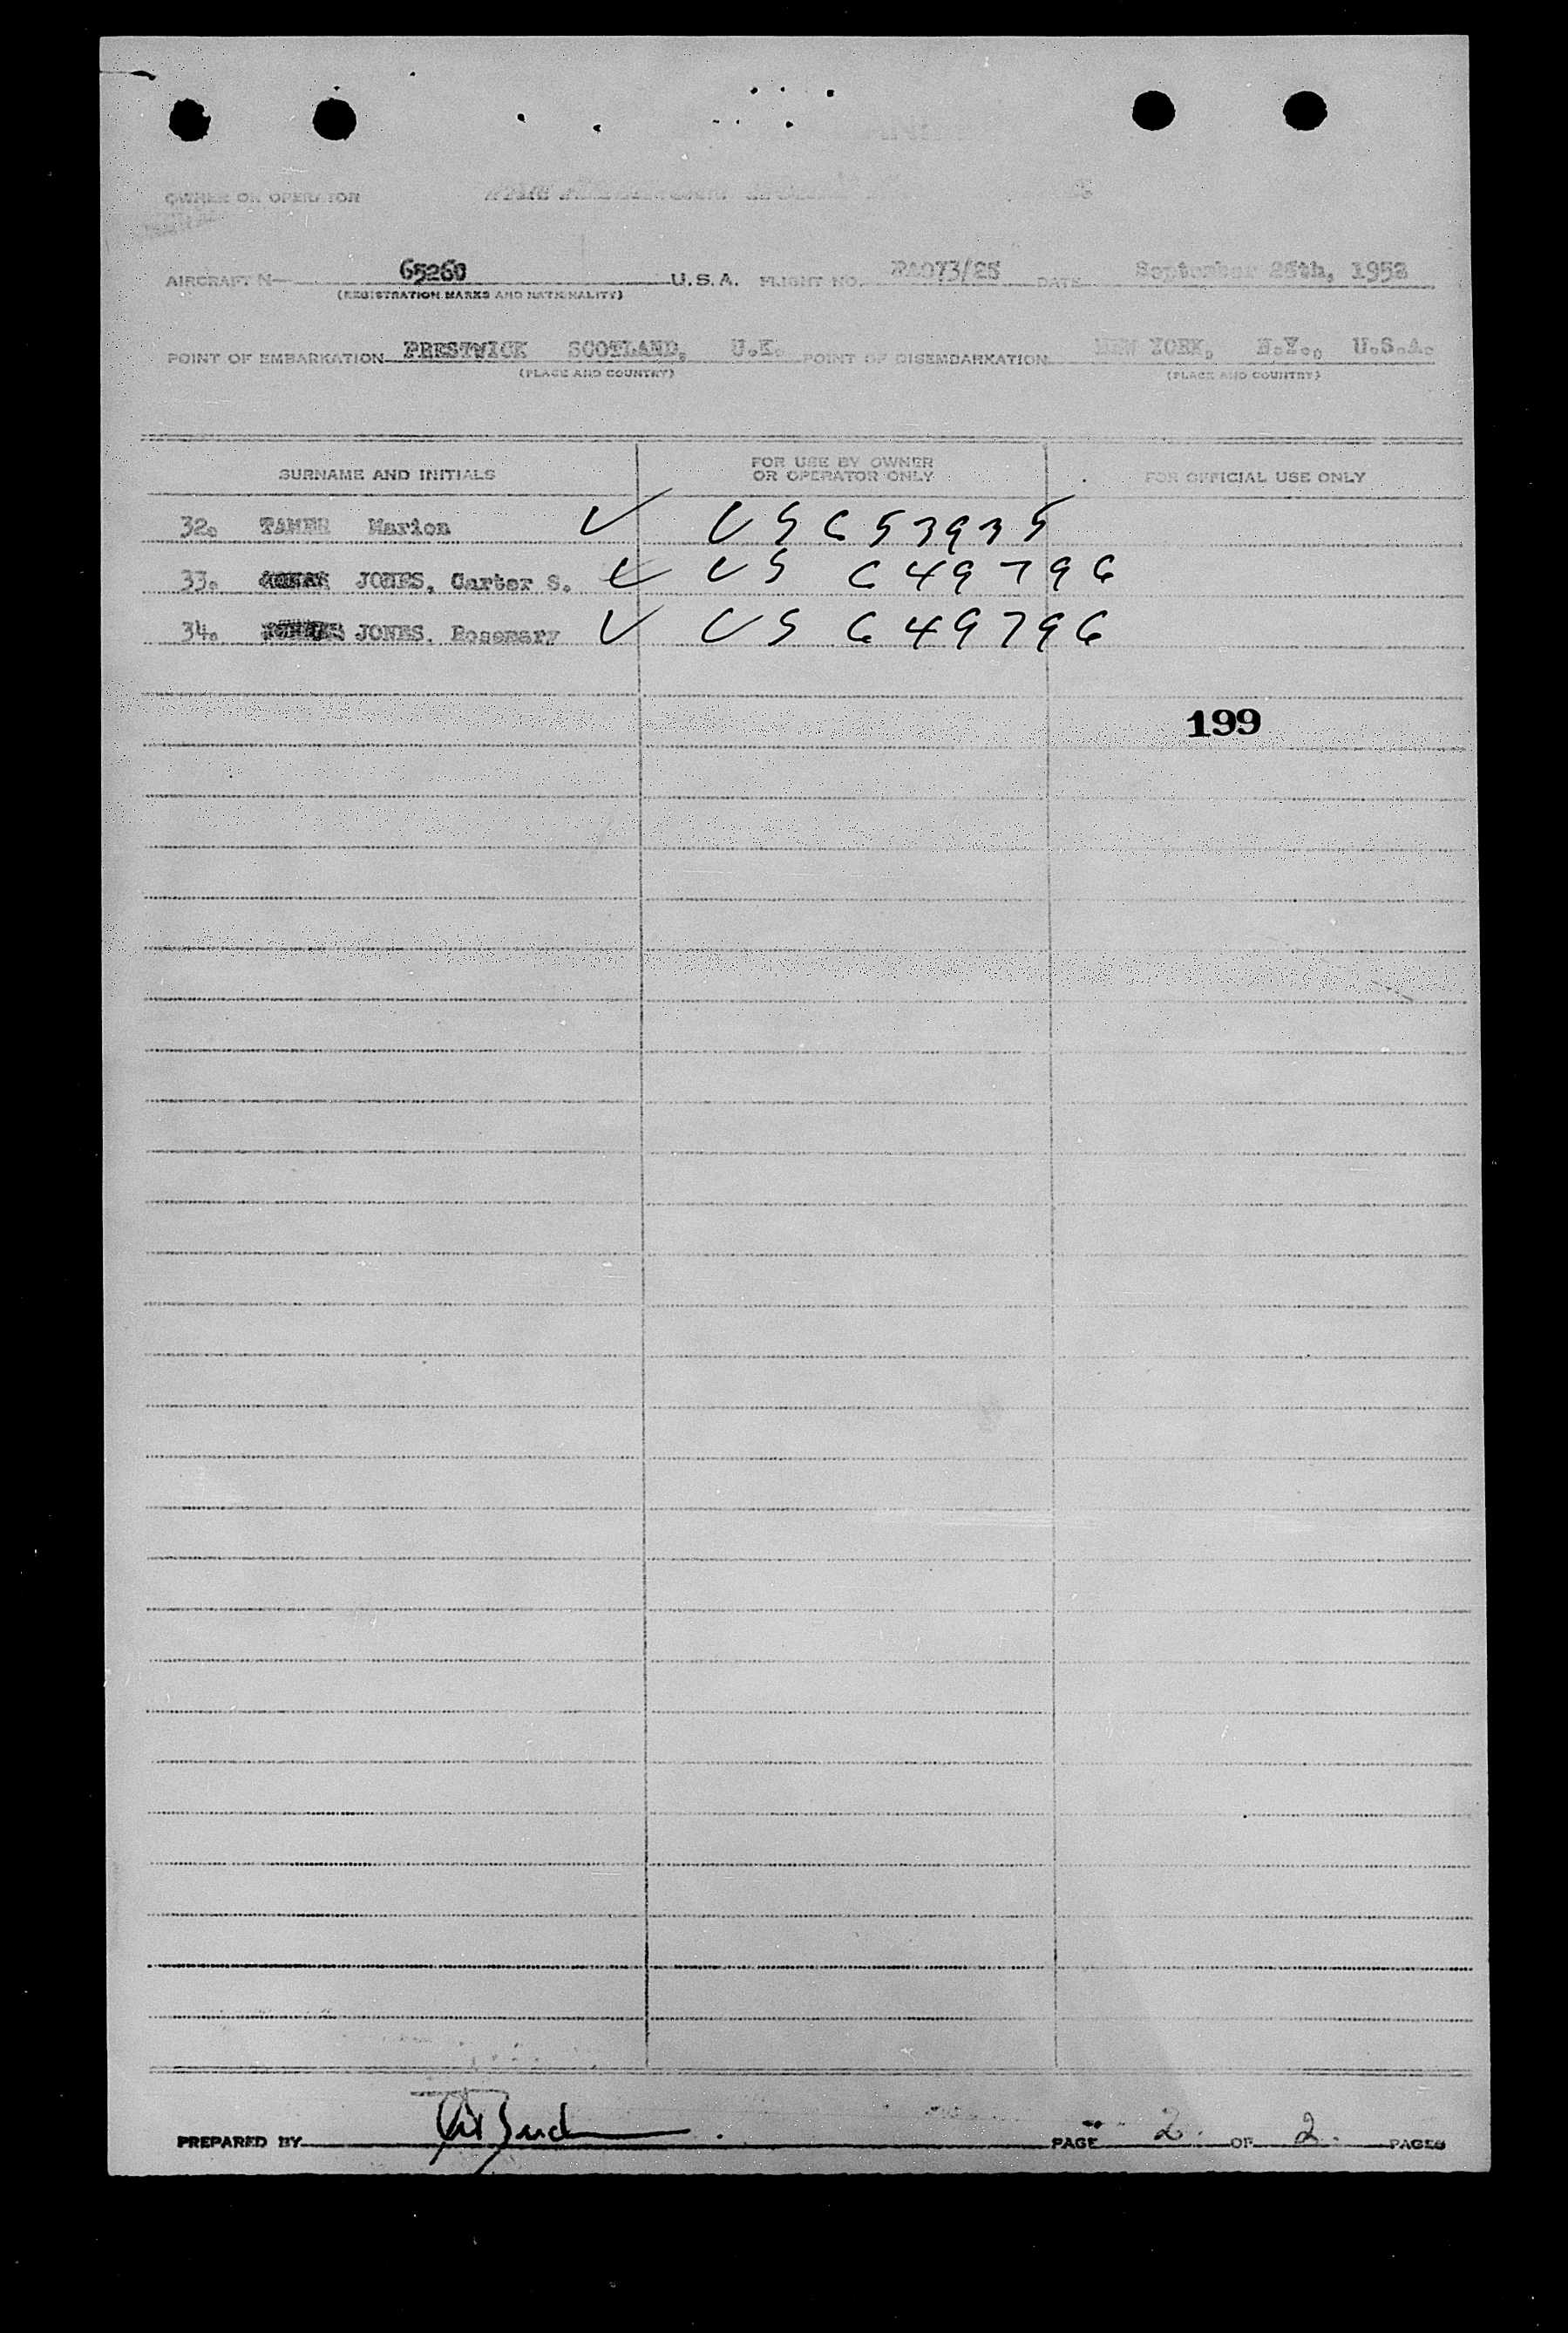 OWNER OR OPERATOR
AIRCRAFT N 65260 U.S.A. FLIGHT NO. DATE September 25th, 1952
(REGISTRATION MARKS AND NATIONALITY)
POINT OF EMBARKATION PRESTWICK SCOTLAND, U.K. POINT OF DISEMBARKATION NEW YORK, N.Y., U.S.A.
(PLACE AND COUNTRY) (PLACE AND COUNTRY)
SURNAME AND INITIALS FOR USE BY OWNER OR OPERATOR ONLY FOR OFFICIAL USE ONLY
32. TAMER Marion ✓ US 653935
33. JONES, Carter S. ✓ US 649796
34. JONES, Rosemary ✓ US 649796
199
PREPARED BY PAGE 2 OF 2 PAGES